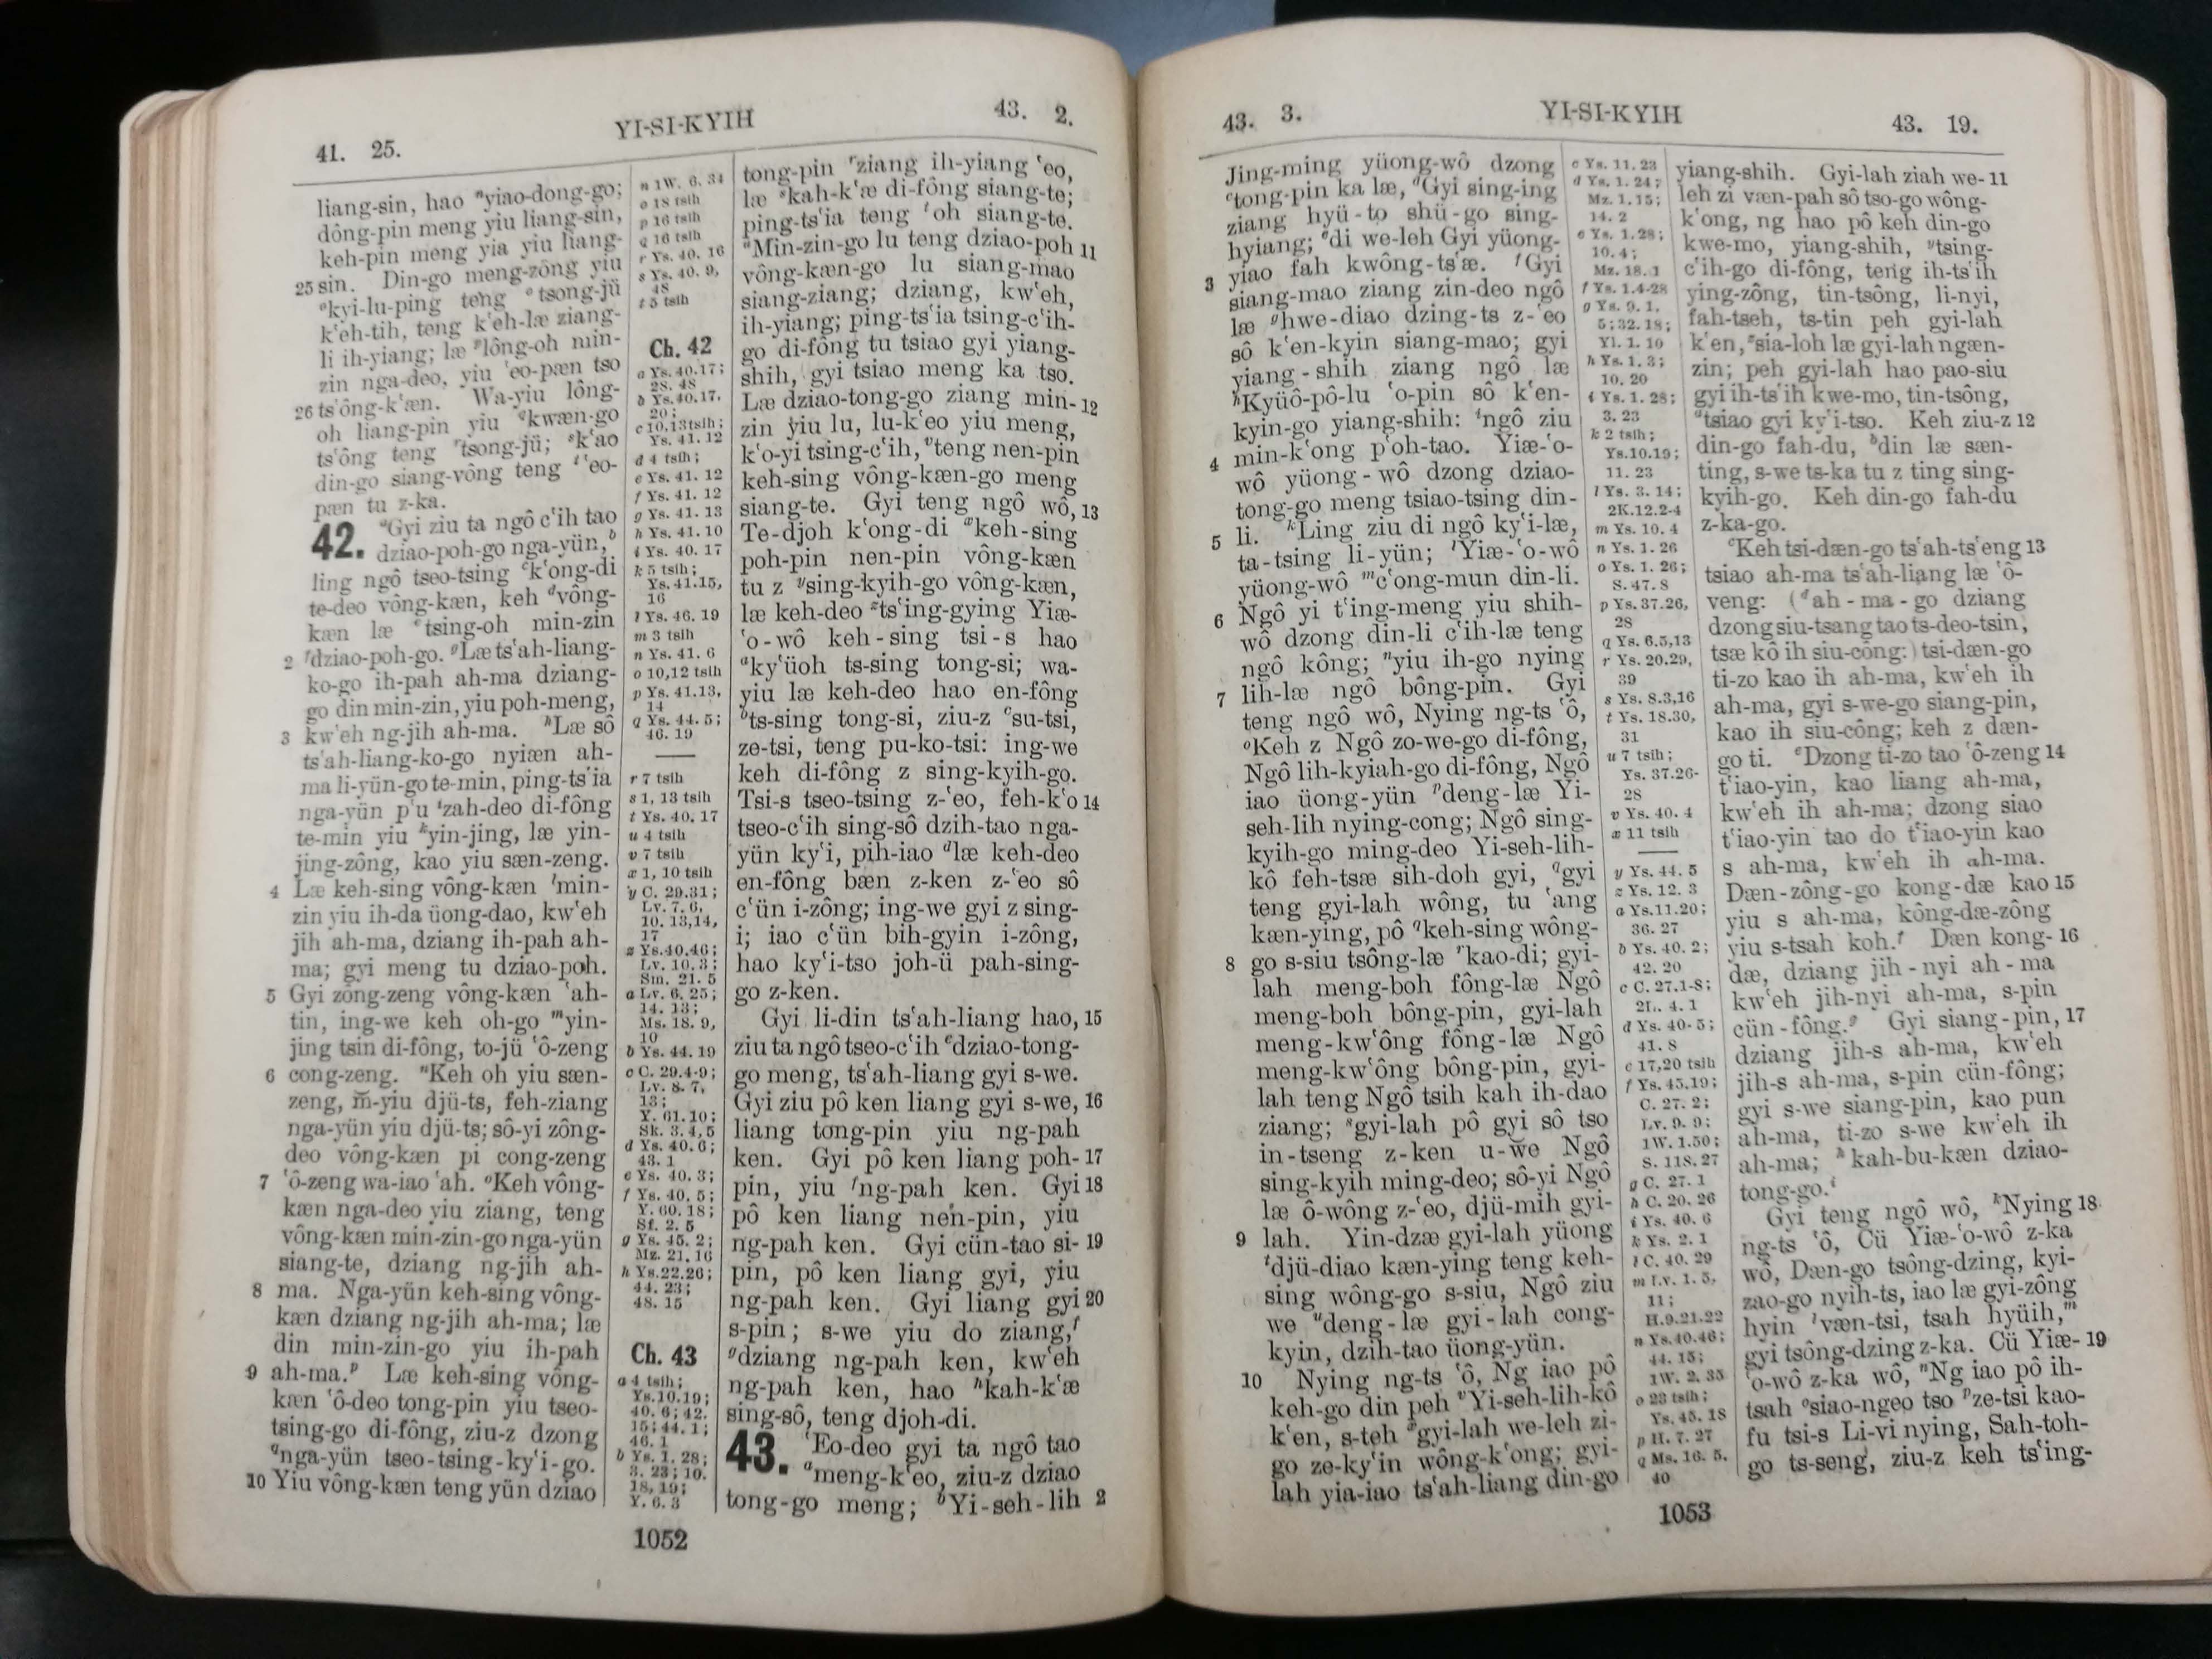 41. 25.
YI-SI-KYIH
43. 2.
liang-sin, hao ⁿyiao-dong-go;
dông-pin meng yiu liang-sin,
keh-pin meng yia yiu liang-
25 sin. Din-go meng-zông yiu
ᵒkyi-lu-ping teng ᵉtsong-jü
k‘eh-tih, teng k‘eh-læ ziang-
li ih-yiang; læ ᵖlông-oh min-
zin nga-deo, yiu ‘eo-pæn tso
26 ts‘ông-k‘æn. Wa-yiu lông-
oh liang-pin yiu ᑫkwæn-go
ts‘ông teng ʳtsong-jü; ˢk‘ao
din-go siang-vông teng ᵗ‘eo-
pæn tu z-ka.
42. ᵃGyi ziu ta ngô c‘ih tao
dziao-poh-go nga-yün, ᵇ
ling ngô tseo-tsing ᶜk‘ong-di
te-deo vông-kæn, keh ᵈvông-
kæn læ ᵉtsing-oh min-zin
2 ᶠdziao-poh-go. ᵍLæ ts‘ah-liang-
ko-go ih-pah ah-ma dziang-
go din min-zin, yiu poh-meng,
3 kw‘eh ng-jih ah-ma. ʰLæ sô
ts‘ah-liang-ko-go nyiæn ah-
ma li-yün-go te-min, ping-ts‘ia
nga-yün p‘u ⁱzah-deo di-fông
te-min yiu ᵏyin-jing, læ yin-
jing-zông, kao yiu sæn-zeng.
4 Læ keh-sing vông-kæn ˡmin-
zin yiu ih-da üong-dao, kw‘eh
jih ah-ma, dziang ih-pah ah-
ma; gyi meng tu dziao-poh.
5 Gyi zông-zeng vông-kæn ‘ah-
tin, ing-we keh oh-go ᵐyin-
jing tsin di-fông, to-jü ‘ô-zeng
6 cong-zeng. ⁿKeh oh yiu sæn-
zeng, m̆-yiu djü-ts, feh-ziang
nga-yün yiu djü-ts; sô-yi zông-
deo vông-kæn pi cong-zeng
7 ‘ô-zeng wa-iao ‘ah. ᵒKeh vông-
kæn nga-deo yiu ziang, teng
vông-kæn min-zin-go nga-yün
siang-te, dziang ng-jih ah-
8 ma. Nga-yün keh-sing vông-
kæn dziang ng-jih ah-ma; læ
din min-zin-go yiu ih-pah
9 ah-ma.ᵖ Læ keh-sing vông-
kæn ‘ô-deo tong-pin yiu tseo-
tsing-go di-fông, ziu-z dzong
ᑫnga-yün tseo-tsing-ky‘i-go.
10 Yiu vông-kæn teng yün dziao
n 1W. 6. 34
o 18 tsih
p 16 tsih
q 16 tsih
r Ys. 40. 16
s Ys. 40. 9,
48
t 5 tsih
Ch. 42
a Ys. 40.17;
28. 48
b Ys. 40.17,
20;
c 10,13 tsih;
Ys. 41. 12
d 4 tsih;
e Ys. 41. 12
f Ys. 41. 12
g Ys. 41. 13
h Ys. 41. 10
i Ys. 40. 17
k 5 tsih;
Ys. 41.15,
16
l Ys. 46. 19
m 3 tsih
n Ys. 41. 6
o 10,12 tsih
p Ys. 41.13,
14
q Ys. 44. 5;
46. 19
r 7 tsih
s 1, 13 tsih
t Ys. 40. 17
u 4 tsih
v 7 tsih
x 1, 10 tsih
y C. 29.31;
Lv. 7. 6,
10. 13,14,
17
z Ys.40.46;
Lv. 10. 3;
Sm. 21. 5
a Lv. 6. 25;
14. 13;
Ms. 18. 9,
10
b Ys. 44. 19
c C. 29.4-9;
Lv. 8. 7,
13;
Y. 61. 10;
Sk. 3. 4,5
d Ys. 40. 6;
43. 1
e Ys. 40. 3;
f Ys. 40. 5;
Y. 60. 18;
Sf. 2. 5
g Ys. 45. 2;
Mz. 21. 16
h Ys.22.26;
44. 23;
48. 15
Ch. 43
a 4 tsih;
Ys.10.19;
40. 6; 42.
15; 44. 1;
46. 1
b Ys. 1. 28;
3. 23; 10.
18, 19;
Y. 6. 3
tong-pin ʳziang ih-yiang ‘eo,
læ ˢkah-k‘æ di-fông siang-te;
ping-ts‘ia teng ᵗoh siang-te.
ᵘMin-zin-go lu teng dziao-poh 11
vông-kæn-go lu siang-mao
siang-ziang; dziang, kw‘eh,
ih-yiang; ping-ts‘ia tsing-c‘ih-
go di-fông tu tsiao gyi yiang-
shih, gyi tsiao meng ka tso.
Læ dziao-tong-go ziang min- 12
zin yiu lu, lu-k‘eo yiu meng,
k‘o-yi tsing-c‘ih, ᵛteng nen-pin
keh-sing vông-kæn-go meng
siang-te. Gyi teng ngô wô, 13
Te-djoh k‘ong-di ˣkeh-sing
poh-pin nen-pin vông-kæn
tu z ʸsing-kyih-go vông-kæn,
læ keh-deo ᶻts‘ing-gying Yiæ-
‘o-wô keh-sing tsi-s hao
ᵃky‘üoh ts-sing tong-si; wa-
yiu læ keh-deo hao en-fông
ᵇts-sing tong-si, ziu-z ᶜsu-tsi,
ze-tsi, teng pu-ko-tsi: ing-we
keh di-fông z sing-kyih-go.
Tsi-s tseo-tsing z-‘eo, feh-k‘o 14
tseo-c‘ih sing-sô dzih-tao nga-
yün ky‘i, pih-iao ᵈlæ keh-deo
en-fông bæn z-ken z-‘eo sô
c‘ün i-zông; ing-we gyi z sing-
i; iao c‘ün bih-gyin i-zông,
hao ky‘i-tso joh-ü pah-sing-
go z-ken.
Gyi li-din ts‘ah-liang hao, 15
ziu ta ngô tseo-c‘ih ᵉdziao-tong-
go meng, ts‘ah-liang gyi s-we.
Gyi ziu pô ken liang gyi s-we, 16
liang tong-pin yiu ng-pah
ken. Gyi pô ken liang poh- 17
pin, yiu ᶠng-pah ken. Gyi 18
pô ken liang nen-pin, yiu
ng-pah ken. Gyi cün-tao si- 19
pin, pô ken liang gyi, yiu
ng-pah ken. Gyi liang gyi 20
s-pin; s-we yiu do ziang,ᶠ
ᵍdziang ng-pah ken, kw‘eh
ng-pah ken, hao ʰkah-k‘æ
sing-sô, teng djoh-di.
43. ‘Eo-deo gyi ta ngô tao
ᵃmeng-k‘eo, ziu-z dziao
tong-go meng; ᵇYi-seh-lih 2
1052
43. 3.
YI-SI-KYIH
43. 19.
Jing-ming yüong-wô dzong
ᶜtong-pin ka læ, ᵈGyi sing-ing
ziang hyü-to shü-go sing-
hyiang; ᵉdi we-leh Gyi yüong-
3 yiao fah kwông-ts‘æ. ᶠGyi
siang-mao ziang zin-deo ngô
læ ᵍhwe-diao dzing-ts z-‘eo
sô k‘en-kyin siang-mao; gyi
yiang-shih ziang ngô læ
ʰKyüô-pô-lu ‘o-pin sô k‘en-
kyin-go yiang-shih: ⁱngô ziu
4 min-k‘ong p‘oh-tao. Yiæ-‘o-
wô yüong-wô dzong dziao-
tong-go meng tsiao-tsing din-
5 li. ᵏLing ziu di ngô ky‘i-læ,
ta-tsing li-yün; ˡYiæ-‘o-wô
yüong-wô ᵐc‘ong-mun din-li.
6 Ngô yi t‘ing-meng yiu shih-
wô dzong din-li c‘ih-læ teng
ngô kông; ⁿyiu ih-go nying
7 lih-læ ngô bông-pin. Gyi
teng ngô wô, Nying ng-ts ‘ô,
ᵒKeh z Ngô zo-we-go di-fông,
Ngô lih-kyiah-go di-fông, Ngô
iao üong-yün ᵖdeng-læ Yi-
seh-lih nying-cong; Ngô sing-
kyih-go ming-deo Yi-seh-lih-
kô feh-tsæ sih-doh gyi, ᑫgyi
teng gyi-lah wông, tu ‘ang
kæn-ying, pô ᑫkeh-sing wông-
8 go s-siu tsông-læ ʳkao-di; gyi-
lah meng-boh fông-læ Ngô
meng-boh bông-pin, gyi-lah
meng-kw‘ông fông-læ Ngô
meng-kw‘ông bông-pin, gyi-
lah teng Ngô tsih kah ih-dao
ziang; ˢgyi-lah pô gyi sô tso
in-tseng z-ken u-w̆e Ngô
sing-kyih ming-deo; sô-yi Ngô
læ ô-wông z-‘eo, djü-mih gyi-
9 lah. Yin-dzæ gyi-lah yüong
ᵗdjü-diao kæn-ying teng keh-
sing wông-go s-siu, Ngô ziu
we ᵘdeng-læ gyi-lah cong-
kyin, dzih-tao üong-yün.
10 Nying ng-ts ‘ô, Ng iao pô
keh-go din peh ᵛYi-seh-lih-kô
k‘en, s-teh ˣgyi-lah we-leh zi-
go ze-ky‘in wông-k‘ong; gyi-
lah yia-iao ts‘ah-liang din-go
c Ys. 11. 23
d Ys. 1. 24;
Mz. 1.15;
14. 2
e Ys. 1. 28;
10. 4;
Mz. 18. 1
f Ys. 1.4-28
g Ys. 9. 1,
5; 32. 18;
Yl. 1. 10
h Ys. 1. 3;
10. 20
i Ys. 1. 28;
3. 23
k 2 tsih;
Ys.10.19;
11. 23
l Ys. 3. 14;
2K.12.2-4
m Ys. 10. 4
n Ys. 1. 26
o Ys. 1. 26;
S. 47. 8
p Ys. 37.26,
28
q Ys. 6.5,13
r Ys. 20.29,
39
s Ys. 8.3,16
t Ys. 18.30,
31
u 7 tsih;
Ys. 37.26-
28
v Ys. 40. 4
x 11 tsih
y Ys. 44. 5
z Ys. 12. 3
a Ys.11.20;
36. 27
b Ys. 40. 2;
42. 20
c C. 27.1-8;
2L. 4. 1
d Ys. 40. 5;
41. 8
e 17,20 tsih
f Ys. 45.19;
C. 27. 2;
Lv. 9. 9;
1W. 1.50;
S. 118. 27
g C. 27. 1
h C. 20. 26
i Ys. 40. 6
k Ys. 2. 1
l C. 40. 29
m Lv. 1. 5,
11;
H.9.21.22
n Ys.40.46;
44. 15;
1W. 2. 35
o 23 tsih;
Ys. 45. 18
p H. 7. 27
q Ms. 16. 5,
40
yiang-shih. Gyi-lah ziah we- 11
leh zi væn-pah sô tso-go wông-
k‘ong, ng hao pô keh din-go
kwe-mo, yiang-shih, ʸtsing-
c‘ih-go di-fông, teng ih-ts‘ih
ying-zông, tin-tsông, li-nyi,
fah-tseh, ts-tin peh gyi-lah
k‘en, ᶻsia-loh læ gyi-lah ngæn-
zin; peh gyi-lah hao pao-siu
gyi ih-ts‘ih kwe-mo, tin-tsông,
ᵃtsiao gyi ky‘i-tso. Keh ziu-z 12
din-go fah-du, ᵇdin læ sæn-
ting, s-we ts-ka tu z ting sing-
kyih-go. Keh din-go fah-du
z-ka-go.
ᶜKeh tsi-dæn-go ts‘ah-ts‘eng 13
tsiao ah-ma ts‘ah-liang læ ‘ô-
veng: (ᵈah-ma-go dziang
dzong siu-tsang tao ts-deo-tsin,
tsæ kô ih siu-công:) tsi-dæn-go
ti-zo kao ih ah-ma, kw‘eh ih
ah-ma, gyi s-we-go siang-pin,
kao ih siu-công; keh z dæn-
go ti. ᵉDzong ti-zo tao ‘ô-zeng 14
t‘iao-yin, kao liang ah-ma,
kw‘eh ih ah-ma; dzong siao
t‘iao-yin tao do t‘iao-yin kao
s ah-ma, kw‘eh ih ah-ma.
Dæn-zông-go kong-dæ kao 15
yiu s ah-ma, kông-dæ-zông
yiu s-tsah koh.ᶠ Dæn kong- 16
dæ, dziang jih-nyi ah-ma
kw‘eh jih-nyi ah-ma, s-pin
cün-fông.ᵍ Gyi siang-pin, 17
dziang jih-s ah-ma, kw‘eh
jih-s ah-ma, s-pin cün-fông;
gyi s-we siang-pin, kao pun
ah-ma, ti-zo s-we kw‘eh ih
ah-ma; ʰkah-bu-kæn dziao-
tong-go.ⁱ
Gyi teng ngô wô, ᵏNying 18
ng-ts ‘ô, Cü Yiæ-‘o-wô z-ka
wô, Dæn-go tsông-dzing, kyi-
zao-go nyih-ts, iao læ gyi-zông
hyin ˡvæn-tsi, tsah hyüih,ᵐ
gyi tsông-dzing z-ka. Cü Yiæ- 19
‘o-wô z-ka wô, ⁿNg iao pô ih-
tsah ᵒsiao-ngeo tso ᵖze-tsi kao-
fu tsi-s Li-vi nying, Sah-toh-
go ts-seng, ziu-z keh ts‘ing-
1053